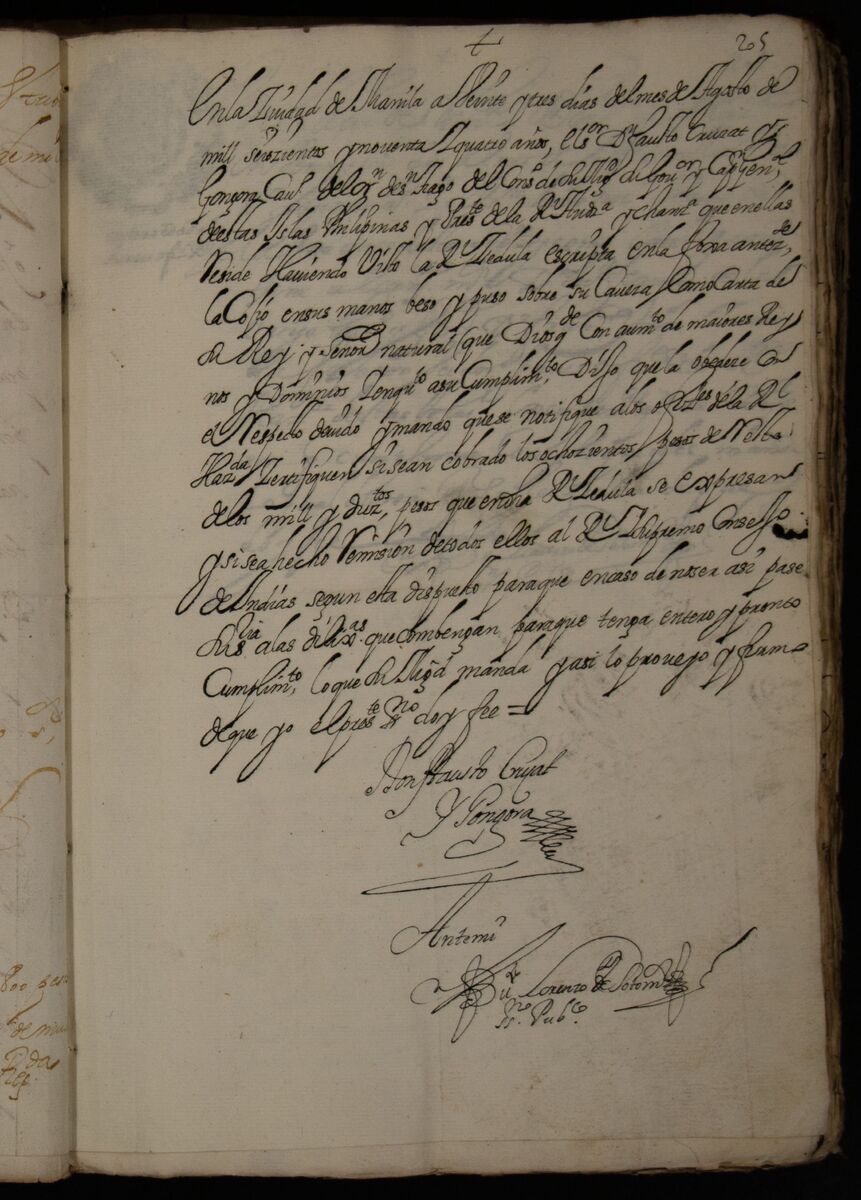 +
205
En la Ziudad de Manila a Veinte y tres dias del mes de Agosto de
mill seiszientos y noventa y quatro años, el sor Dn fausto Cruzat y
Gongora Cauo. del orn de sn tiago del Conso de su Magd su Govor y Capn Genl
destas Islas Philipinas y Preste de la Rl Auda y chanria que en ellas
Reside Haviendo Visto la Rl Zedula escripta en la foxa antezte
la Cojio en sus manos beso y puso sobre su Caveza Como Carta de
su Rey y Señor natural (que Dios gde con aumto de maiores Rey
nos y Dominios y en quto a su Cumplimto, Dijo que la obedeze Con
el Respecto devido y mando que se notifique a los ofizes de la Rl
Hazda Zertifiquen si se an cobrado los ochozientos pesos de Resto
de los mill y duztos, pesos que en dha Rl Zedula se expresan
y si se a hecho Remision de todos ellos al Rl y Supremo Consejo
de Indias segun esta dispuesto para que en caso de no ser asi pase
su sria a las dilixas. que combengan para que tenga entero y pronto
Cumplimto, lo que su Magd manda y asi lo proveyo y firmo
de que yo el preste srno doy fee =
Don fausto Cruzat
Y Gongora
Antemi
Lorenzo de Sotomor
sno Pubco.
800 pess